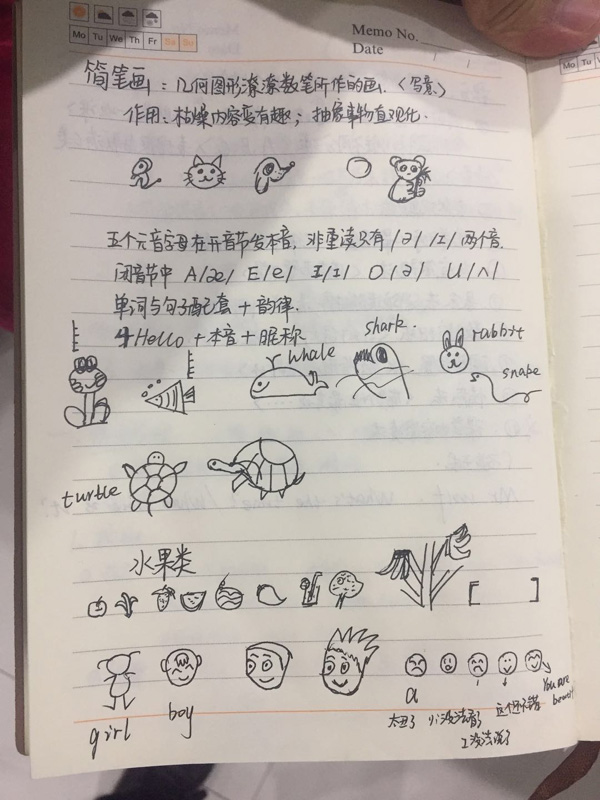 Memo No.
Mo Tu We Th Fr Sa Su
Date
简笔画：几何图形潦潦数笔所作的画.〈写意.〉
作用：枯燥内容变有趣；抽象事物直观化.
五个元音字母在开音节发本音，非重读只有/ə/ /ɪ/两个音.
闭音节中 A/æ/ E/e/ I/ɪ/ O/ə/ U/ʌ/
单词与句子配套＋韵律.
Hello＋本音＋昵称
shark.
whale
rabbit
snake
turtle
水果类
[ ]
girl
boy
a
太丑了
没法看了
I没法说了
这个还不错
You are